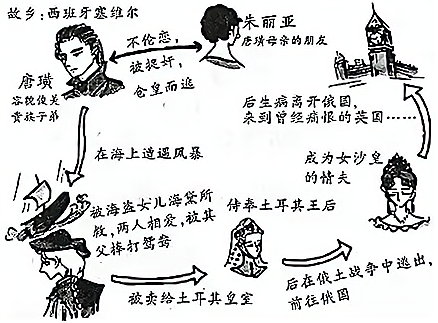 故乡：西班牙塞维尔
朱丽亚
唐璜母亲的朋友
不伦恋，
被捉奸，
仓皇而逃
唐璜
容貌俊美
贵族子弟
在海上遭遇风暴
被海盗女儿海黛所
救，两人相爱，被其
父棒打鸳鸯
被卖给土耳其皇室
侍奉土耳其王后
后在俄土战争中逃出，
前往俄国
成为女沙皇
的情夫
后生病离开俄国，
来到曾经痛恨的英国……